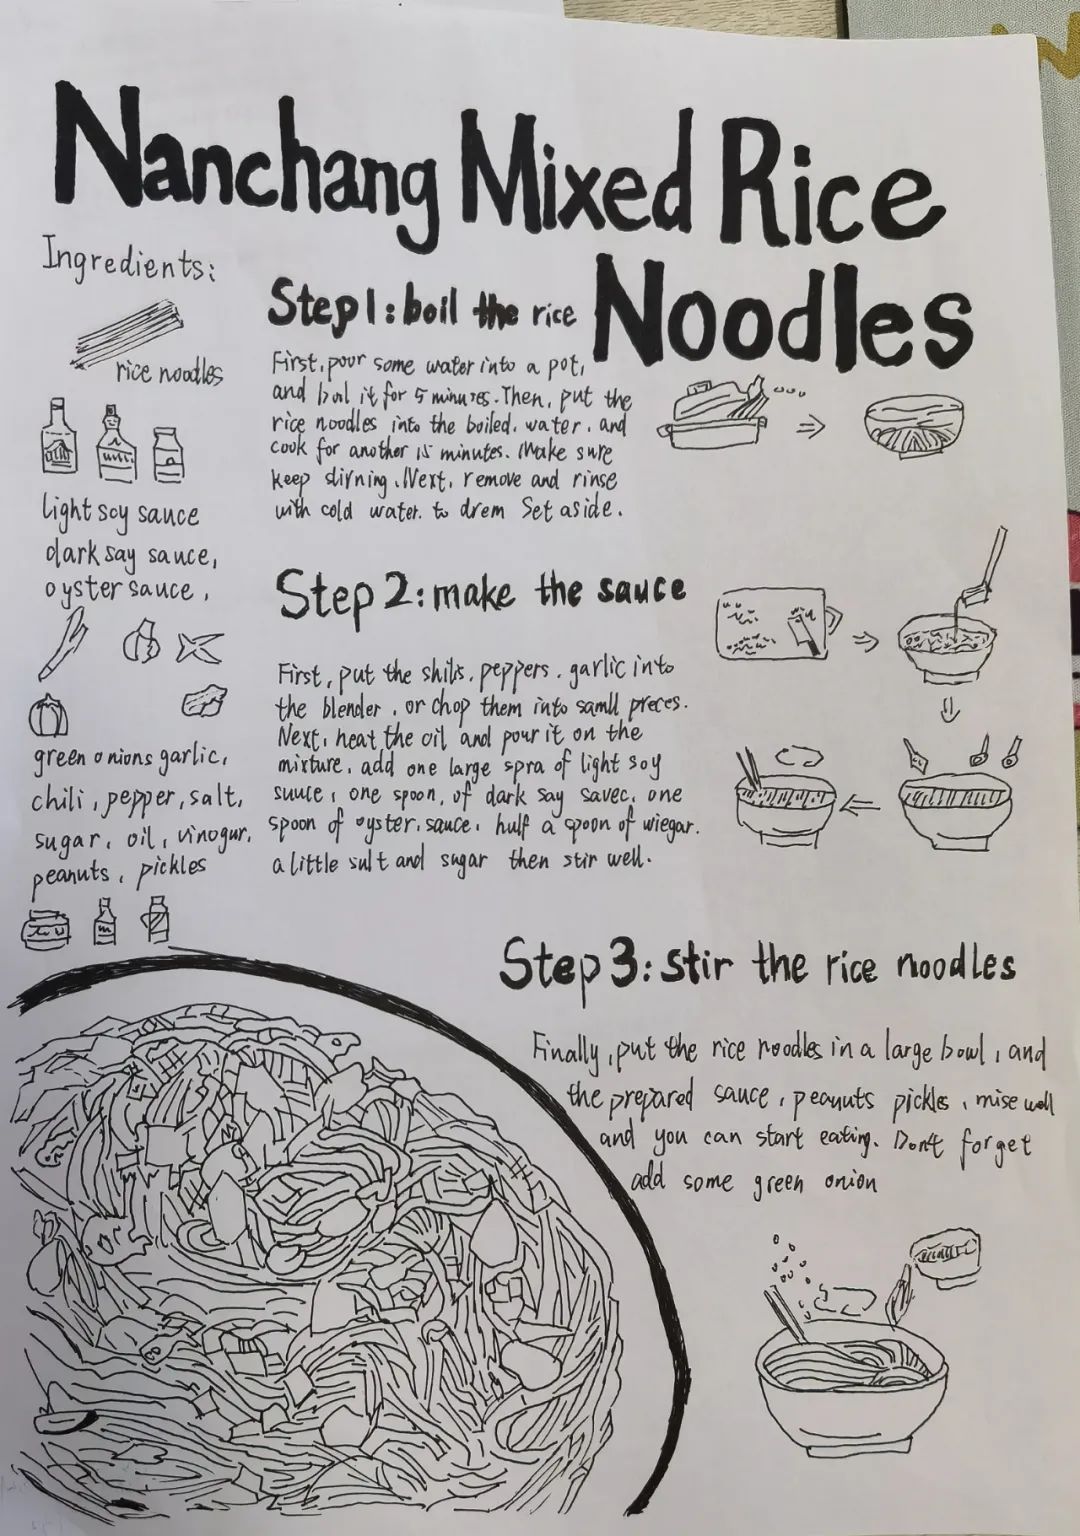 Nanchang Mixed Rice
Noodles
Ingredients:
rice noodles
light soy sauce
dark say sauce,
oyster sauce,
green onions garlic,
chili, pepper, salt,
sugar, oil, vinogur,
peanuts, pickles
Step1: boil the rice
First, pour some water into a pot,
and boil it for 5 minutes. Then, put the
rice noodles into the boiled, water, and
cook for another 15 minutes. Make sure
keep stirning. Next, remove and rinse
with cold water. to drem Set aside.
Step 2: make the sauce
First, put the shils, peppers, garlic into
the blender, or chop them into samll preces.
Next, heat the oil and pour it on the
mixture, add one large spra of light soy
suuce, one spoon, of dark say savec, one
spoon of oyster, sauce, hulf a spoon of wiegar.
a little sult and sugar then stir well.
Step 3: stir the rice noodles
Finally, put the rice noodles in a large bowl, and
the prepared sauce, peanuts pickles, mise well
and you can start eating. Don't forget
add some green onion